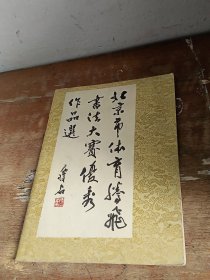 北京市体育腾飞
书法大赛优秀
作品选